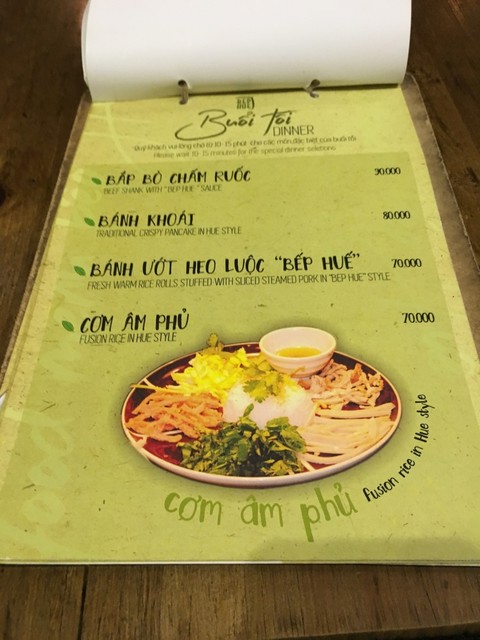 BẾP HUẾ
Buổi Tối
DINNER
Quý khách vui lòng chờ từ 10-15 phút cho các món đặc biệt của buổi tối
Please wait 10-15 minutes for the special dinner selections
BẮP BÒ CHẤM RUỐC 90.000
BEEF SHANK WITH "BEP HUE" SAUCE
BÁNH KHOÁI 80.000
TRADITIONAL CRISPY PANCAKE IN HUE STYLE
BÁNH ƯỚT HEO LUỘC "BẾP HUẾ" 70.000
FRESH WARM RICE ROLLS STUFFED WITH SLICED STEAMED PORK IN "BEP HUE" STYLE
CƠM ÂM PHỦ 70.000
FUSION RICE IN HUE STYLE
cơm âm phủ Fusion rice in Hue style